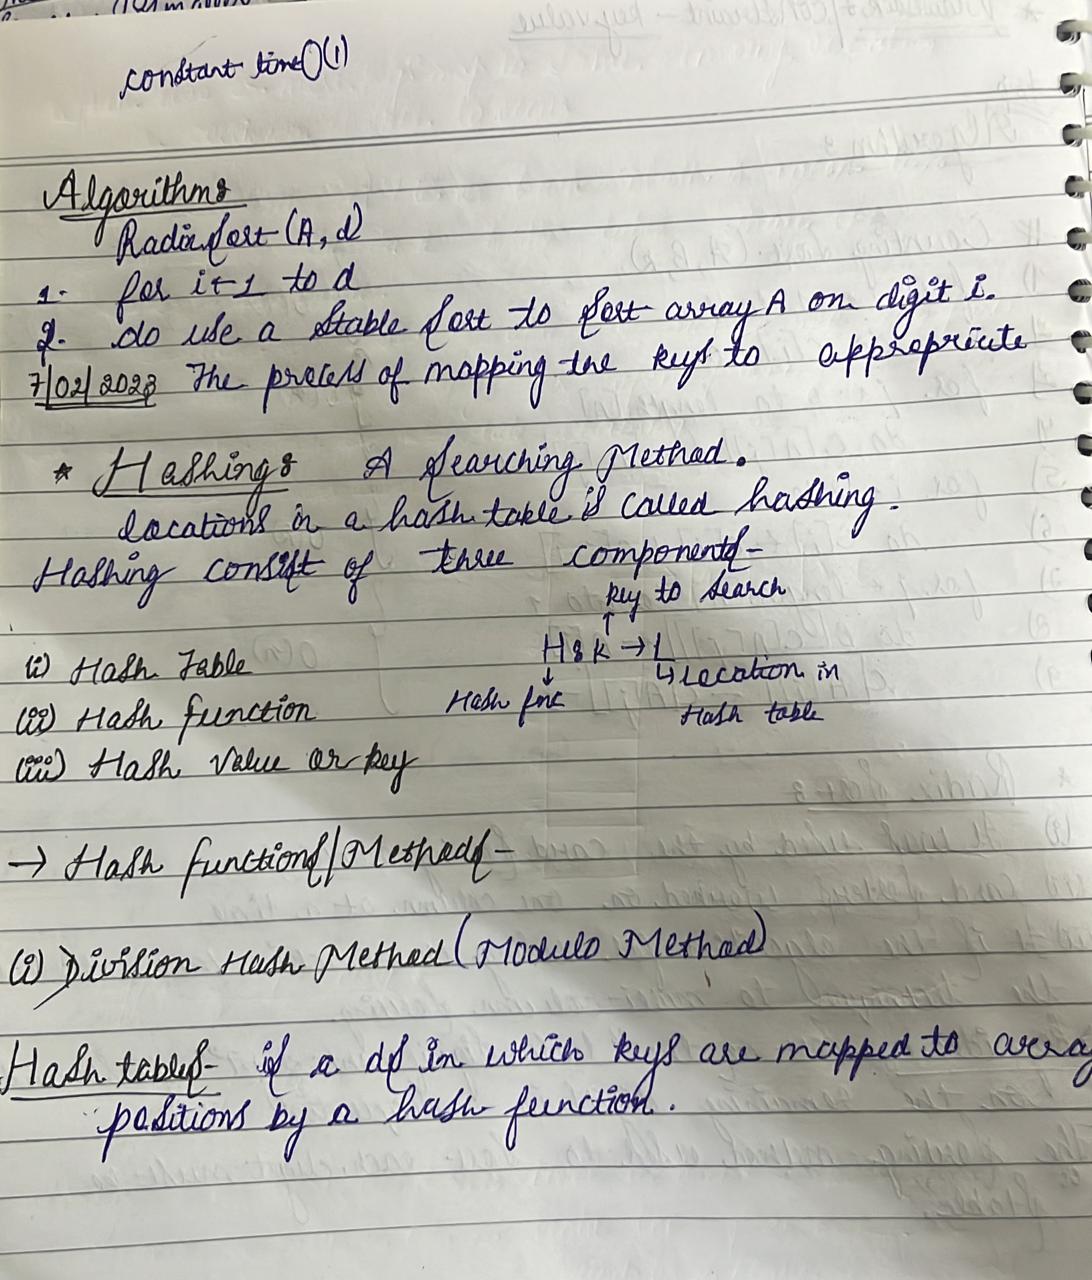 constant time O(1)
Algorithm:
Radix sort (A, d)
1. for i←1 to d
2. do use a stable sort to sort array A on digit i.
7/02/2023 The process of mapping the keys to appropriate
* Hashing: A Searching Method.
locations in a hash table is called hashing.
Hashing consist of three components-
key to search
↑
(i) Hash Table H: K → L
↓ ↳ Location in
(ii) Hash function Hash fnc Hash table
(iii) Hash Value or key
→ Hash functions/Methods-
(i) Division Hash Method (Modulo Method)
Hash tables- is a ds in which keys are mapped to array
positions by a hash function.